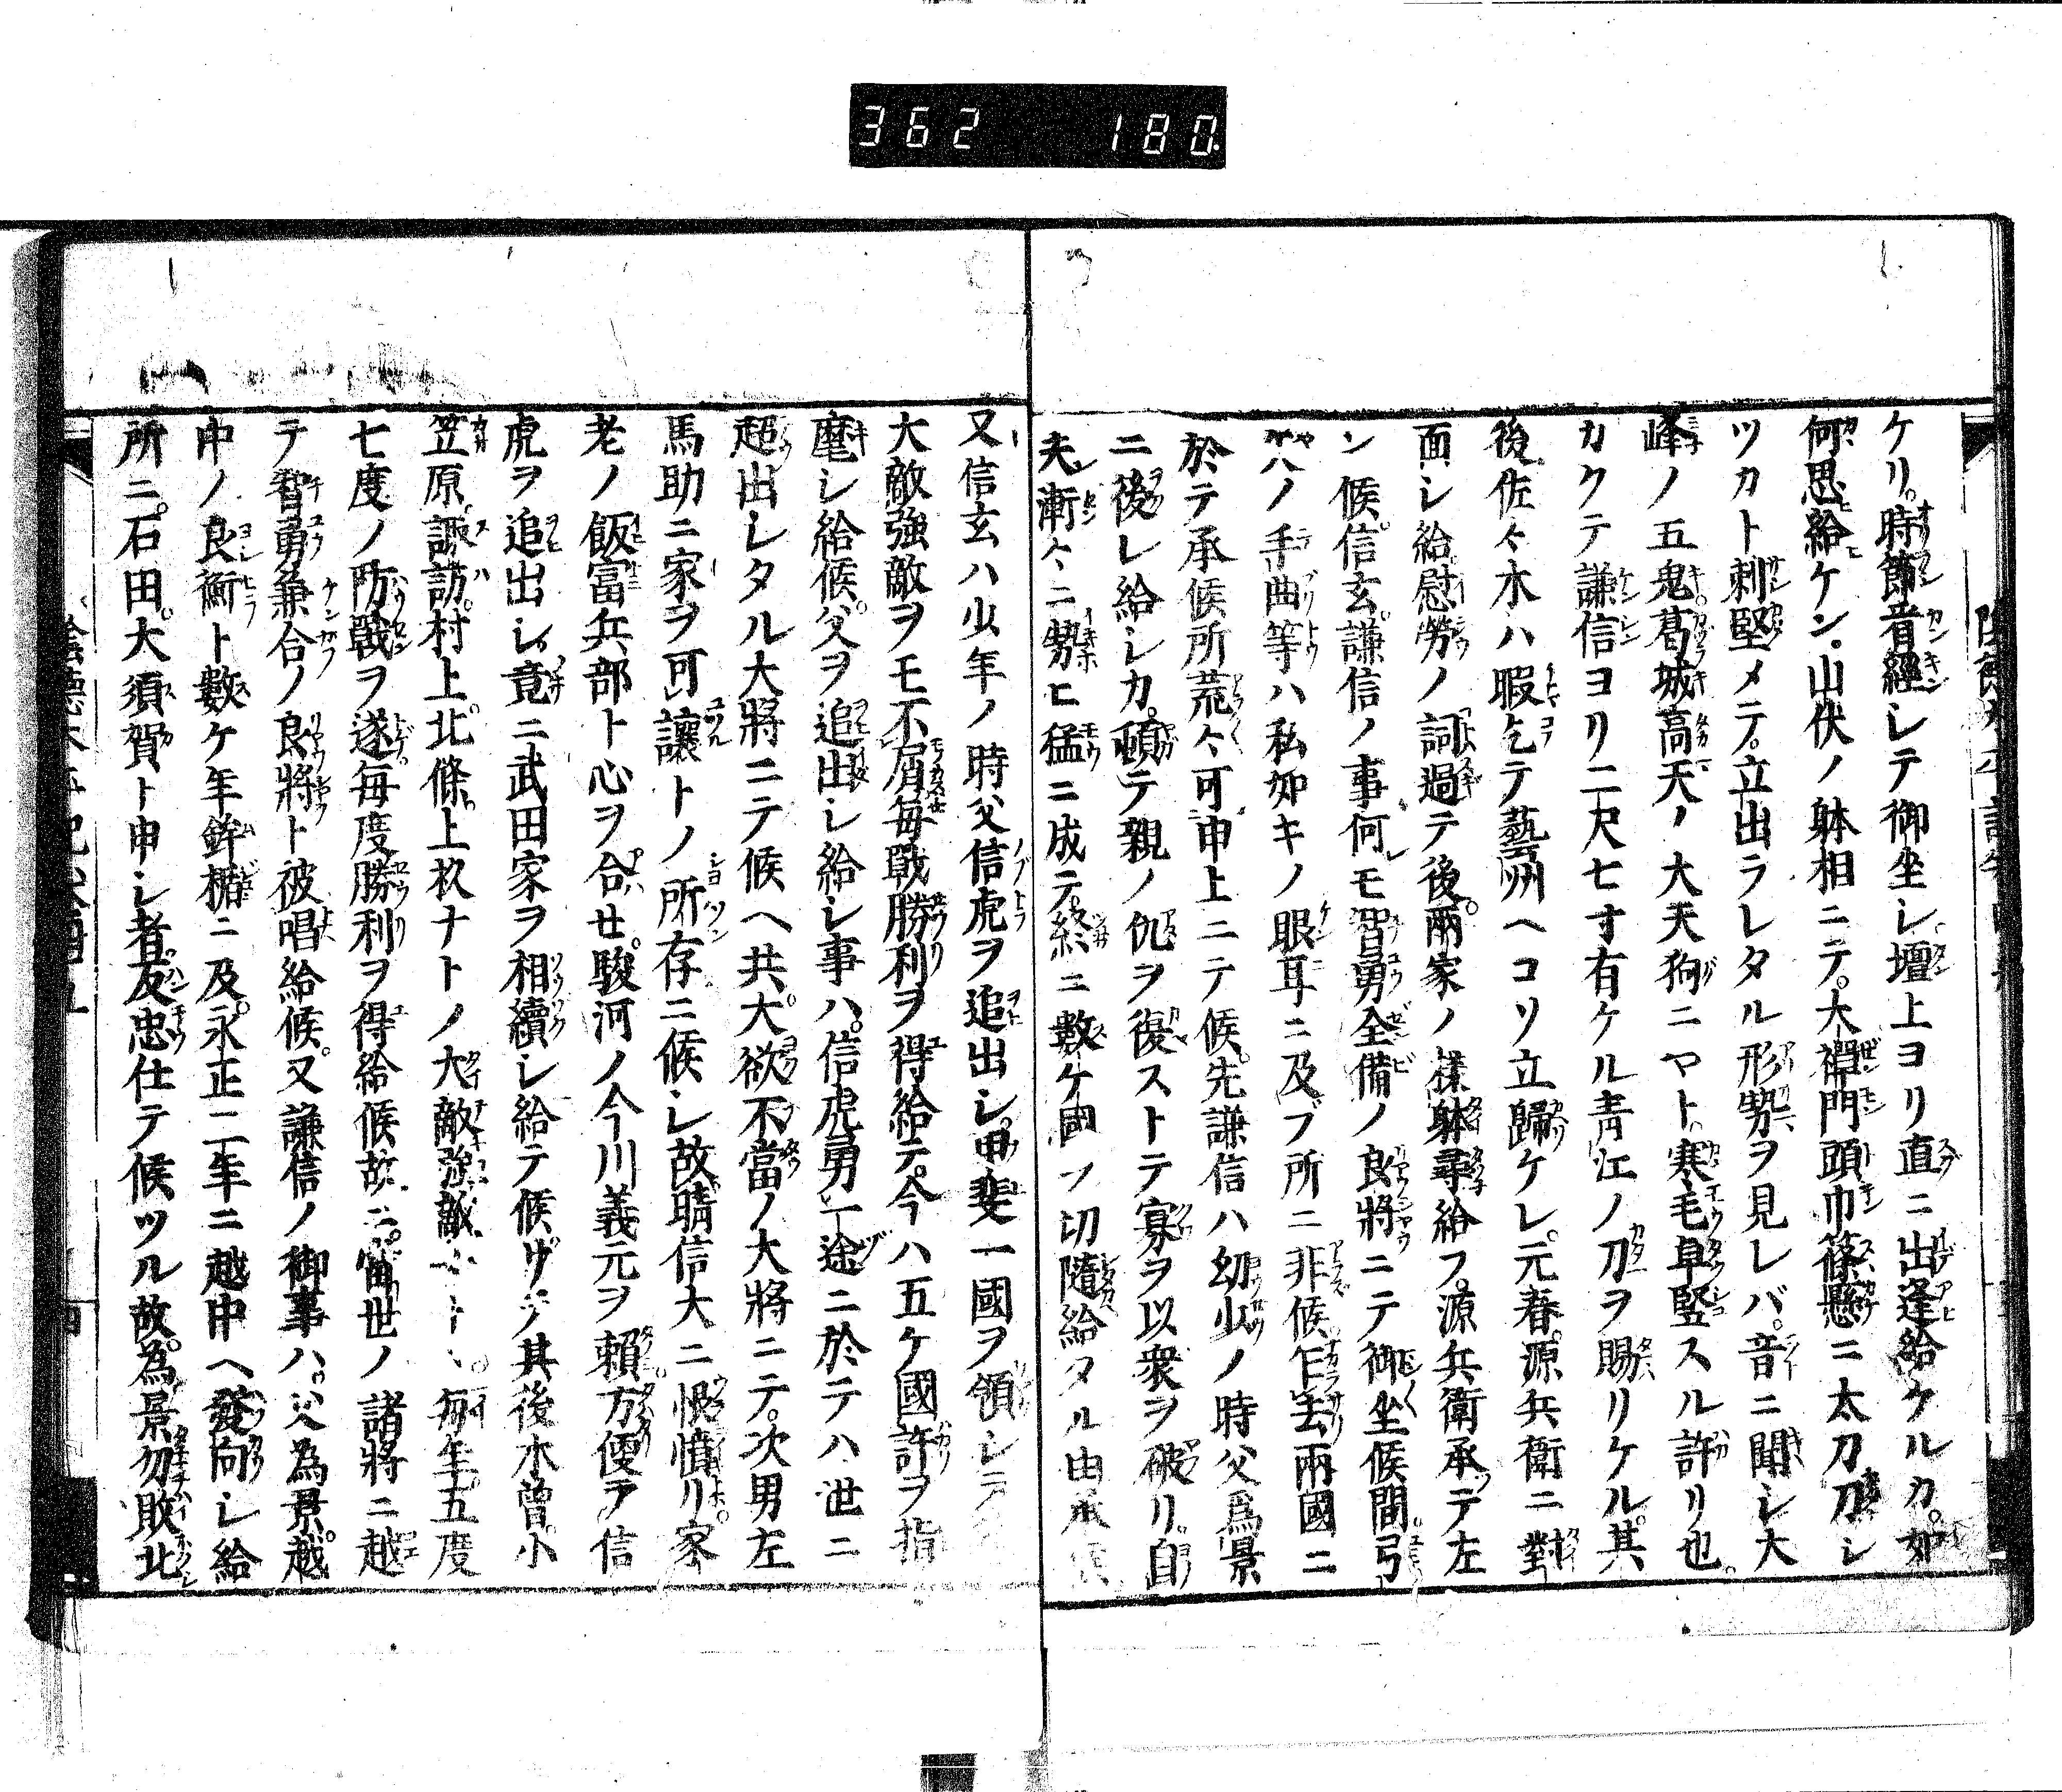 362 180.
ケリ。時節音經シテ御坐シ。壇上ヨリ直ニ出逢給ケルカ。如
何思給ケン。山伏ノ躰相ニテ。大禪門頭巾篠懸ニ太刀刀シ
ツカト刺堅メテ。立出ラレタル形勢ヲ見レバ。音ニ聞シ大
峰ノ五鬼。葛城高天ノ大天狗ニヤト。寒毛卓竪スル許リ也。
カクテ謙信ヨリ二尺七寸有ケル青江ノ刀ヲ賜リケル。其
後佐々木ハ暇乞テ藝州ヘコリ立歸ケレ。元春。源兵衛ニ對
面シ給。慰勞ノ詞過テ後。兩家ノ樣躰尋給フ。源兵衛承テ左
ン候。信玄。謙信ノ事何レモ智勇全備ノ良將ニテ御坐候間。弓
ケハノ手曲等ハ私如キノ眼耳ニ及ブ所ニ非候。乍去兩國ニ
於テ承候所荒々可申上ニテ候。先謙信ハ幼少ノ時父爲景
ニ後レ給シカ。頓テ親ノ仇ヲ復ストテ寡ヲ以衆ヲ破リ。自
夫漸々ニ勢ヒ猛ニ成テ。終ニ數ケ國ヲ切隨給タル由承候
又信玄ハ少年ノ時父信虎ヲ追出シ。甲斐一國ヲ領シテ
大敵強敵ヲモ不屑毎戰勝利ヲ得給テ。今ハ五ケ國許ヲ指
麾シ給候。父ヲ追出シ給シ事ハ。信虎勇一途ニ於テハ世ニ
超出シタル大將ニテ候ヘ共。大欲不當ノ大將ニテ。次男左
馬助ニ家ヲ可讓トノ所存ニ候シ故。晴信大ニ恨憤リ。家
老ノ飯富兵部ト心ヲ合セ。駿河ノ今川義元ヲ頼。方便テ信
虎ヲ追出シ。竟ニ武田家ヲ相續シ給テ候。サテ其後木曾。小
笠原。諏訪。村上。北條。上杉ナトノ大敵強敵毎年五度
七度ノ防戰ヲ遂。毎度勝利ヲ得給候故ニ。當世ノ諸將ニ越
テ智勇兼合ノ良將ト被唱給候。又謙信ノ御事ハ。父為景。越
中ノ良衡ト數ケ年鉾楯ニ及。永正二年ニ越中ヘ發向シ給
所ニ。石田。大須賀ト申シ者。及忠仕テ候ツル故。為景勿敗北